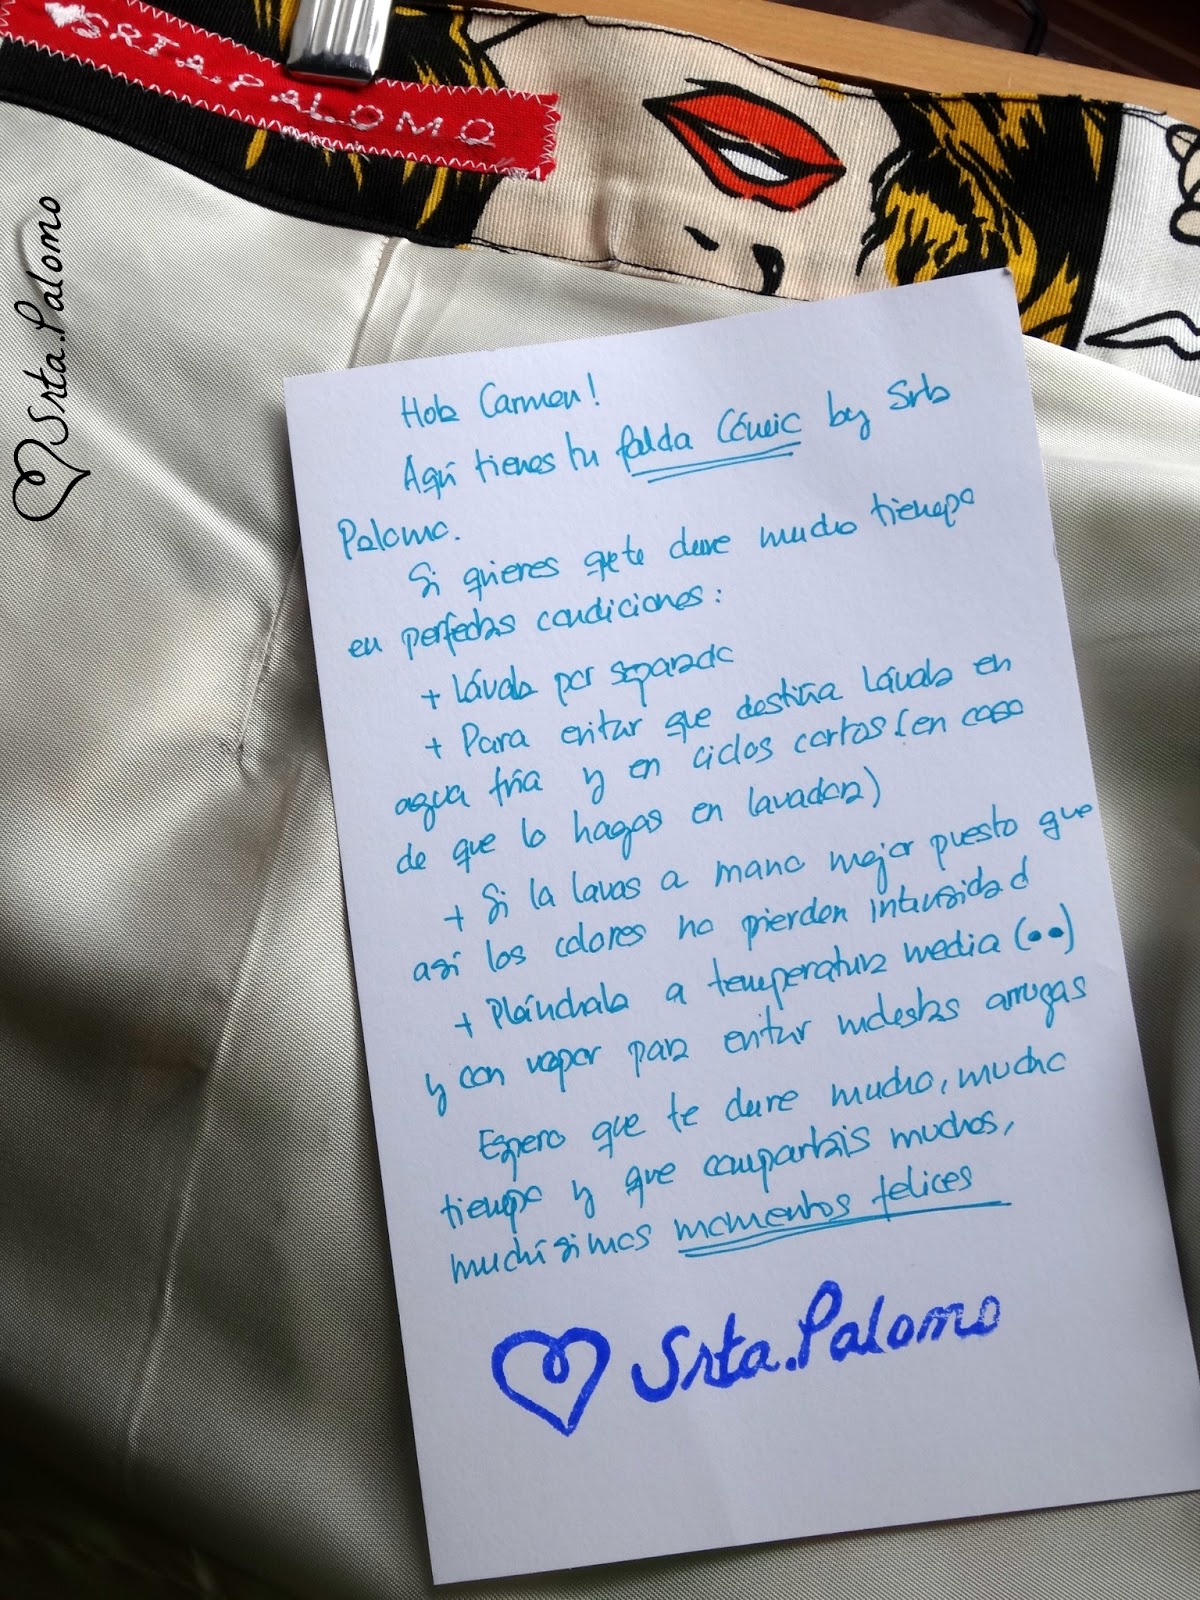 SRTA.PALOMO
Srta.Palomo
Hola Carmen!
Aquí tienes tu falda Cómic by Srta
Palomo.
Si quieres que te dure mucho tiempo
en perfectas condiciones:
+ Lávala por separado
+ Para evitar que destiña Lávala en
agua fría y en ciclos cortos (en caso
de que lo hagas en lavadora)
+ Si la lavas a mano mejor puesto que
así los colores no pierden intensidad
+ Plánchala a temperatura media (••)
y con vapor para evitar molestas arrugas
Espero que te dure mucho, mucho
tiempo y que compartáis muchos,
muchísimos momentos felices
Srta.Palomo